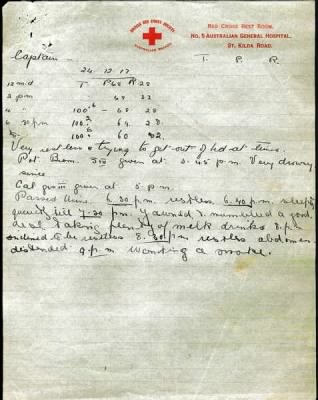 BRITISH RED CROSS SOCIETY
AUSTRALIAN BRANCH
RED CROSS REST ROOM,
No. 5 AUSTRALIAN GENERAL HOSPITAL,
ST. KILDA ROAD.
Captain — T. P. R.
24.12.17
12 mid T P68 R 28
2 pm 68 32
4 " 100.6 68 28
6 30 pm 100.2 64 28
100.6 60 32.
Very restless & trying to get out of bed at times.
Pot. Brom. given at 3.45 p.m. Very drowsy
since
Cal grs given at 5 p.m.
Passed urine. 6.30 p.m. restless 6.40 p.m. sleeping
quietly till 7-30 pm. Yawned & mumbled a good
deal taking plenty of milk drinks 8 p.m
inclined to be restless 8.30 pm restless abdomen
distended 9 p.m wanting a smoke.